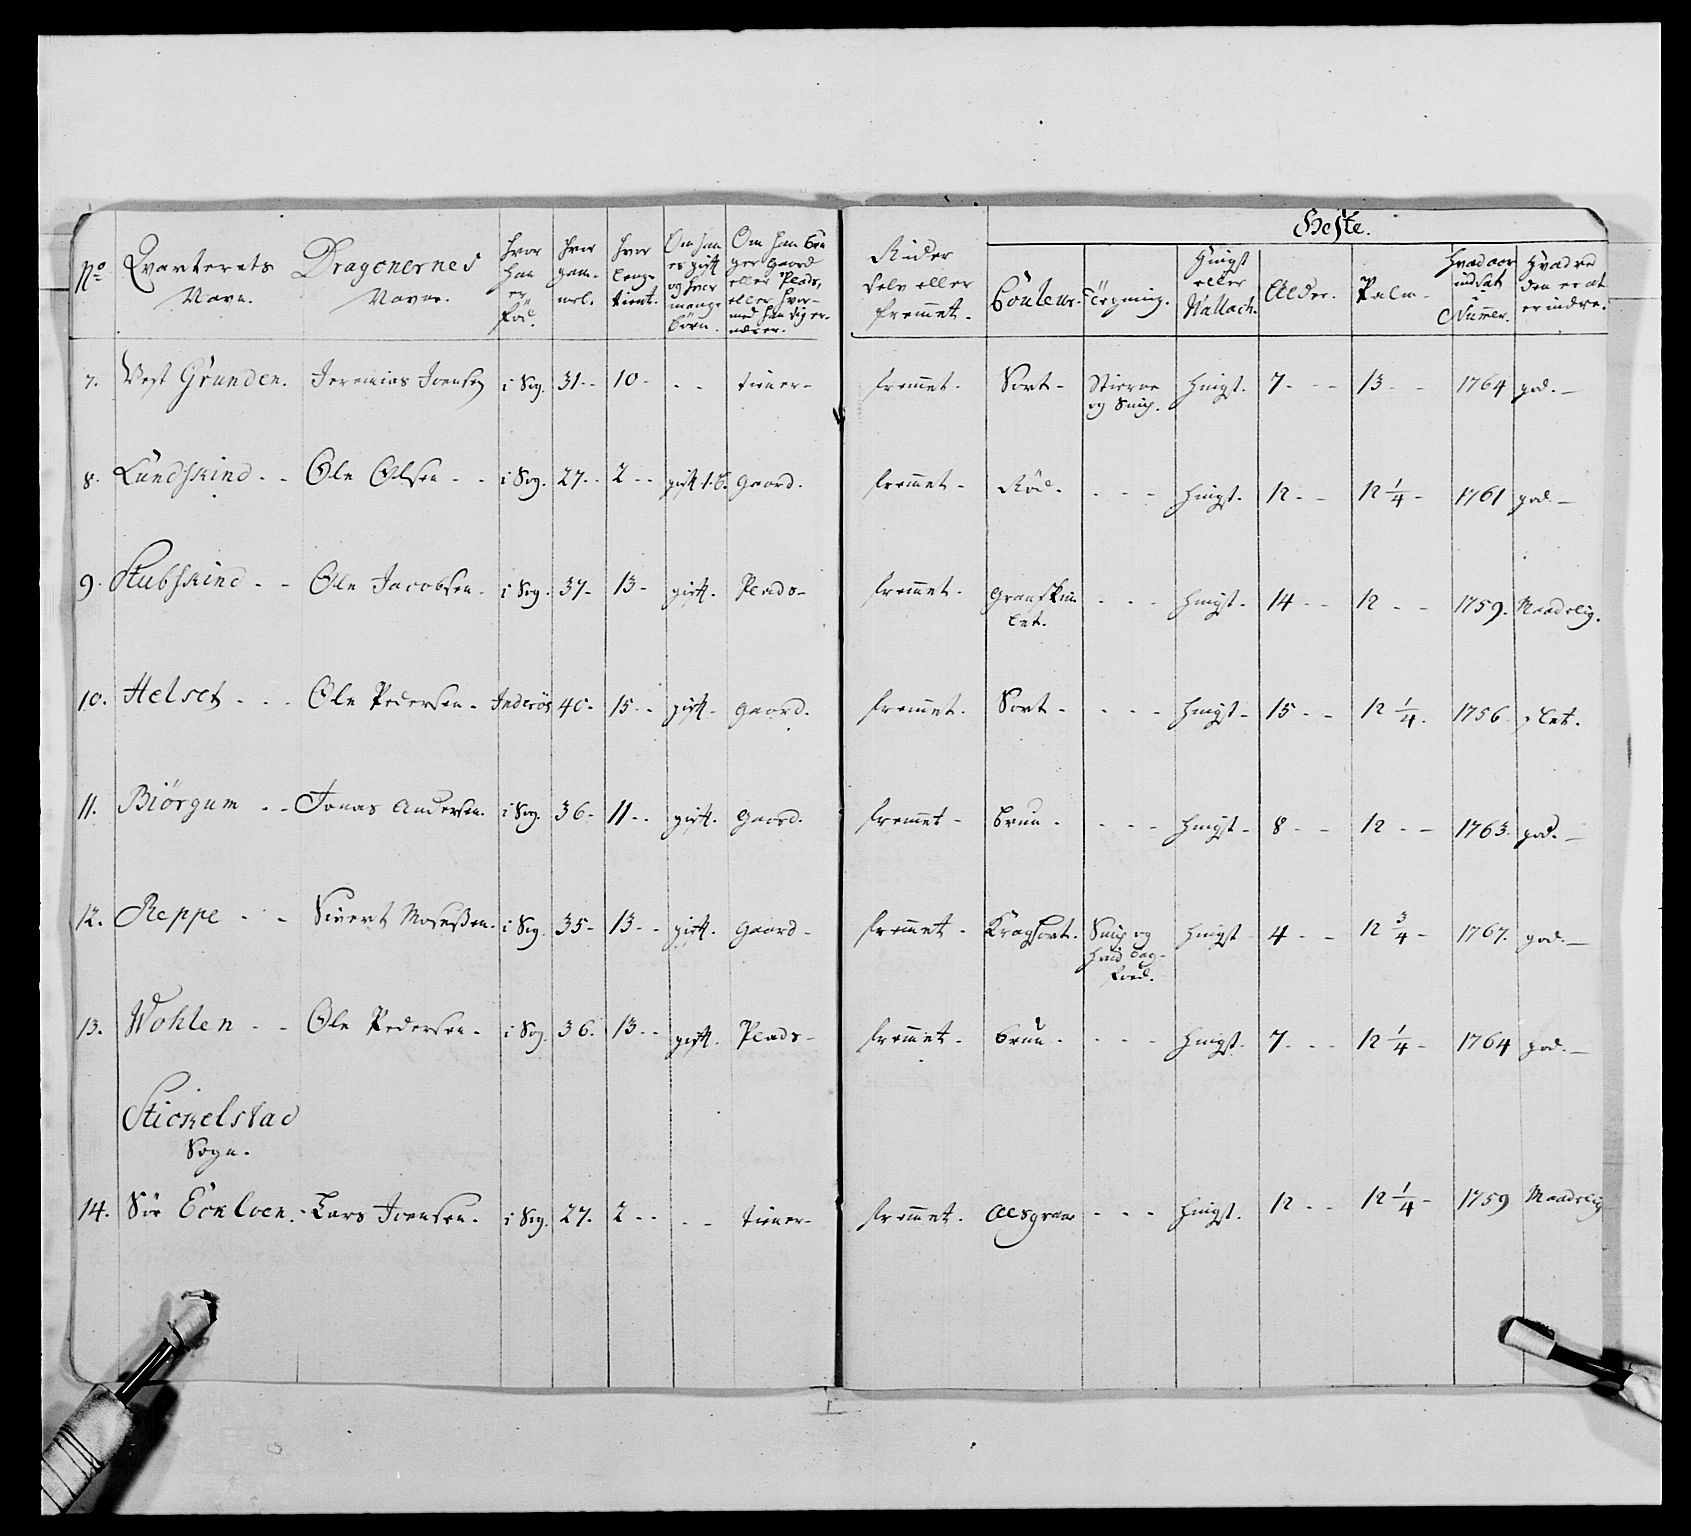 No Qvarterets Navn. Dragonernes Navne. Hvor han er föd. Hvor gam- mel. Hvor lenge tient. Om han er gift og hvor mange börn. Om han bru ger Gaard eller Plads, eller hvor- med han sig er- nærer. Rider selv eller fremmet. Couleur. Tegning. Hingst eller Wallach. Alder. Palm. Hvad aar indsat Nummer. Hvad ved den er at erindre.
Heste.
7. Vest Grunden. Jeremias Joensen i Sog. 31 - - 10 - - - tiener - fremmet - Sort - Stierne og Snip. Hingst. 7 - - - 13 - - 1764 god. -
8. Lundskind - - Ole Olsen - - i Sog. 27 - - 2 - - gift 1. b. Gaard. fremmet - Röd. - - - Hingst. 12 - - 12 1/4 - 1761 god -
9. Stubskind - - Ole Jacobsen - i Sog. 37 - 13 - gift. Plads - fremmet - Graaskim let. - - - Hingst - 14 - - 12 - - 1759. Maadelig.
10. Helset - - - Ole Pedersen - Inderöe 40 - 15 - - gift - Gaard. fremmet. Sort - - - - Hingst - 15 - - 12 1/4. 1756 slet.
11. Biörgum - - Jonas Andersen. i Sog. 36 - 11 - - gift. Gaard. fremmet - Bruun - - - - Hingst - 8 - - 12 - - 1763. god. -
12. Reppe - - Sivert Mosessen. i Sog. 35 - 13 - - gift. Gaard - fremmet - Kragsort. Snip og hvid bag- foed. Hingst 4 - - 12 3/4 - 1767. god. -
13. Wohlen - - Ole Pedersen - i Sog. 36. 13 - - gift. Plads - fremmet - Bruun - - - - Hingst - 7 - - - 12 1/4 - 1764 god. -
Stickelstad
Sogn.
14. Sör - Lars Joensen. i Sog. 27. 2 - - - - tiener - fremmet. - - - Hingst. 12 - - 12 1/4 - 1759 Maadelig